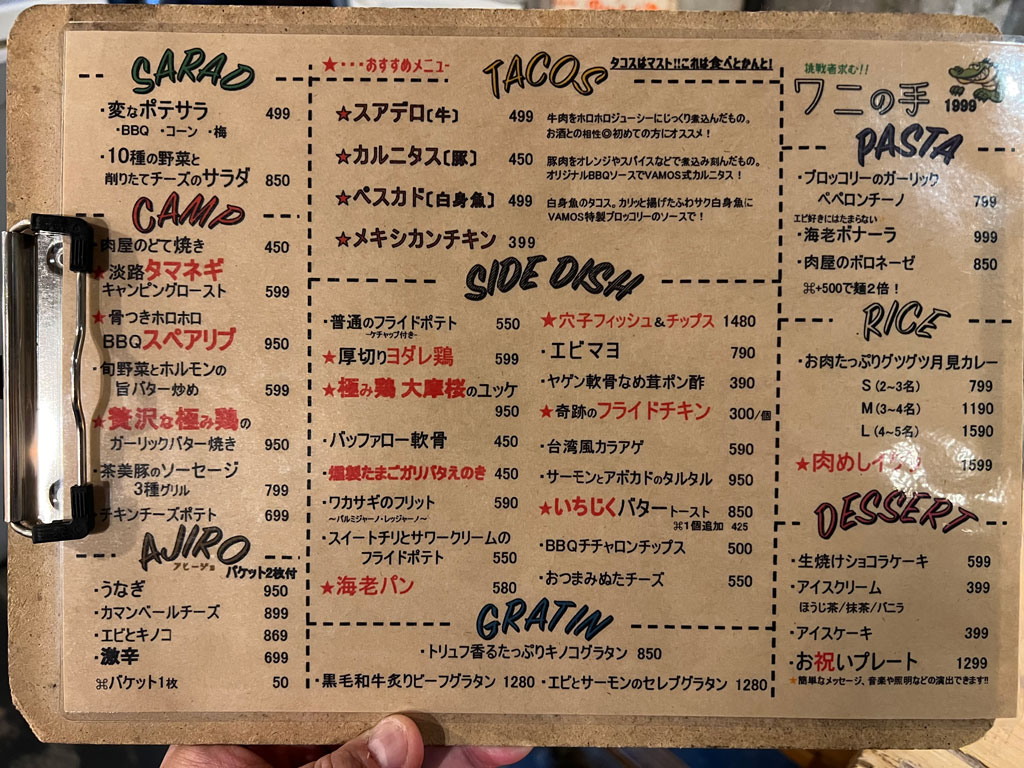 SARAD
・変なポテサラ 499
・BBQ ・コーン ・梅
・10種の野菜と
削りたてチーズのサラダ 850
CAMP
・肉屋のどて焼き 450
★淡路タマネギ
キャンピングロースト 599
★骨つきホロホロ
BBQスペアリブ 950
・旬野菜とホルモンの
旨バター炒め 599
★贅沢な極み鶏の
ガーリックバター焼き 950
・茶美豚のソーセージ
3種グリル 799
・チキンチーズポテト 699
AJIRO
アヒージョ
バケット2枚付
・うなぎ 950
・カマンベールチーズ 899
・エビとキノコ 869
・激辛 699
⌘バケット1枚 50
★・・・おすすめメニュー
TACOS
タコスはマスト!!これは食べとかんと!
★スアデロ〔牛〕 499
牛肉をホロホロジューシーにじっくり煮込んだもの。
お酒との相性◎初めての方にオススメ！
★カルニタス〔豚〕 450
豚肉をオレンジやスパイスなどで煮込み刻んだもの。
オリジナルBBQソースでVAMOS式カルニタス！
★ペスカド〔白身魚〕 499
白身魚のタコス。カリッと揚げたふわサク白身魚に
VAMOS特製ブロッコリーのソースで！
★メキシカンチキン 399
SIDE DISH
・普通のフライドポテト 550
~ケチャップ付き~
★厚切りヨダレ鶏 599
★極み鶏 大摩桜のユッケ
950
・バッファロー軟骨 450
・燻製たまごガリバタえのき 450
・ワカサギのフリット 590
～パルミジャーノ・レッジャーノ～
・スイートチリとサワークリームの
フライドポテト 550
★海老パン 580
★穴子フィッシュ&チップス 1480
・エビマヨ 790
・ヤゲン軟骨なめ茸ポン酢 390
★奇跡のフライドチキン 300/個
・台湾風カラアゲ 590
・サーモンとアボカドのタルタル 950
★いちじくバタートースト 850
⌘1個追加 425
・BBQチチャロンチップス 500
・おつまみぬたチーズ 550
GRATIN
・トリュフ香るたっぷりキノコグラタン 850
・黒毛和牛炙りビーフグラタン 1280
・エビとサーモンのセレブグラタン 1280
挑戦者求む!!
ワニの手 1999
PASTA
・ブロッコリーのガーリック
ペペロンチーノ 799
エビ好きにはたまらない
・海老ボナーラ 999
・肉屋のボロネーゼ 850
⌘+500で麺2倍！
RICE
・お肉たっぷりグツグツ月見カレー
S（2~3名） 799
M（3~4名） 1190
L（4~5名） 1590
★肉めし 1599
DESSERT
・生焼けショコラケーキ 599
・アイスクリーム 399
ほうじ茶/抹茶/バニラ
・アイスケーキ 399
・お祝いプレート 1299
★簡単なメッセージ、音楽や照明などの演出できます!!